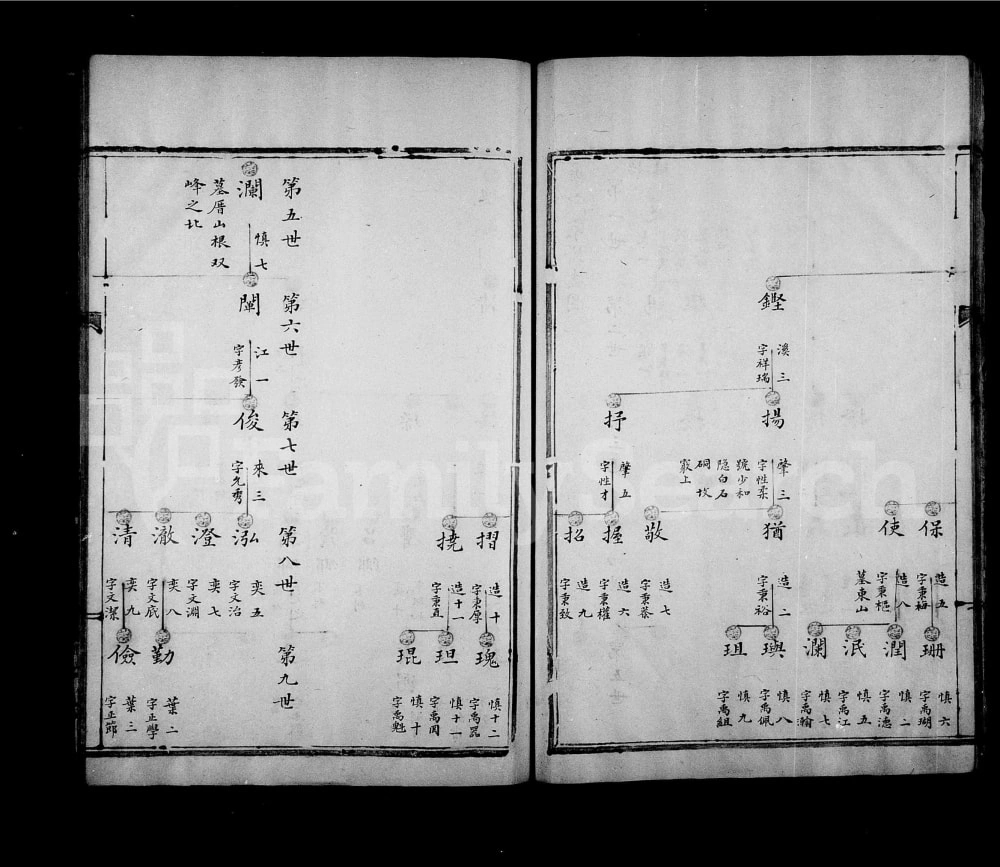 鏗
溪三
字祥瑞
揚
肇三
字性柔
號少和
隐白石
硐坎
嶯上
抒
肇五
字性才
保
造五
字秉梅
使
造八
字秉樞
墓東山
猶
造二
字秉裕
敬
造七
字秉葵
握
造六
字秉權
招
造九
字秉致
珊
慎六
字禹瑚
潤
慎二
字禹德
泯
慎五
字禹江
瀾
慎七
字禹瀚
璵
慎八
字禹佩
珇
慎九
字禹組
摺
造十
字秉厚
撓
造十一
字秉直
瑰
慎十二
字禹
玾
慎十一
字禹
琨
慎十
字禹魁
第五世
瀾
慎七
墓厝山根双
峰之北
第六世
闡
江一
字彥發
第七世
俊
來三
字允秀
第八世
泓
奕五
字文治
澄
奕七
字文淵
澈
奕八
字文底
清
奕九
字文潔
第九世
勤
葉二
字正學
儉
葉三
字正節
FamilySearch